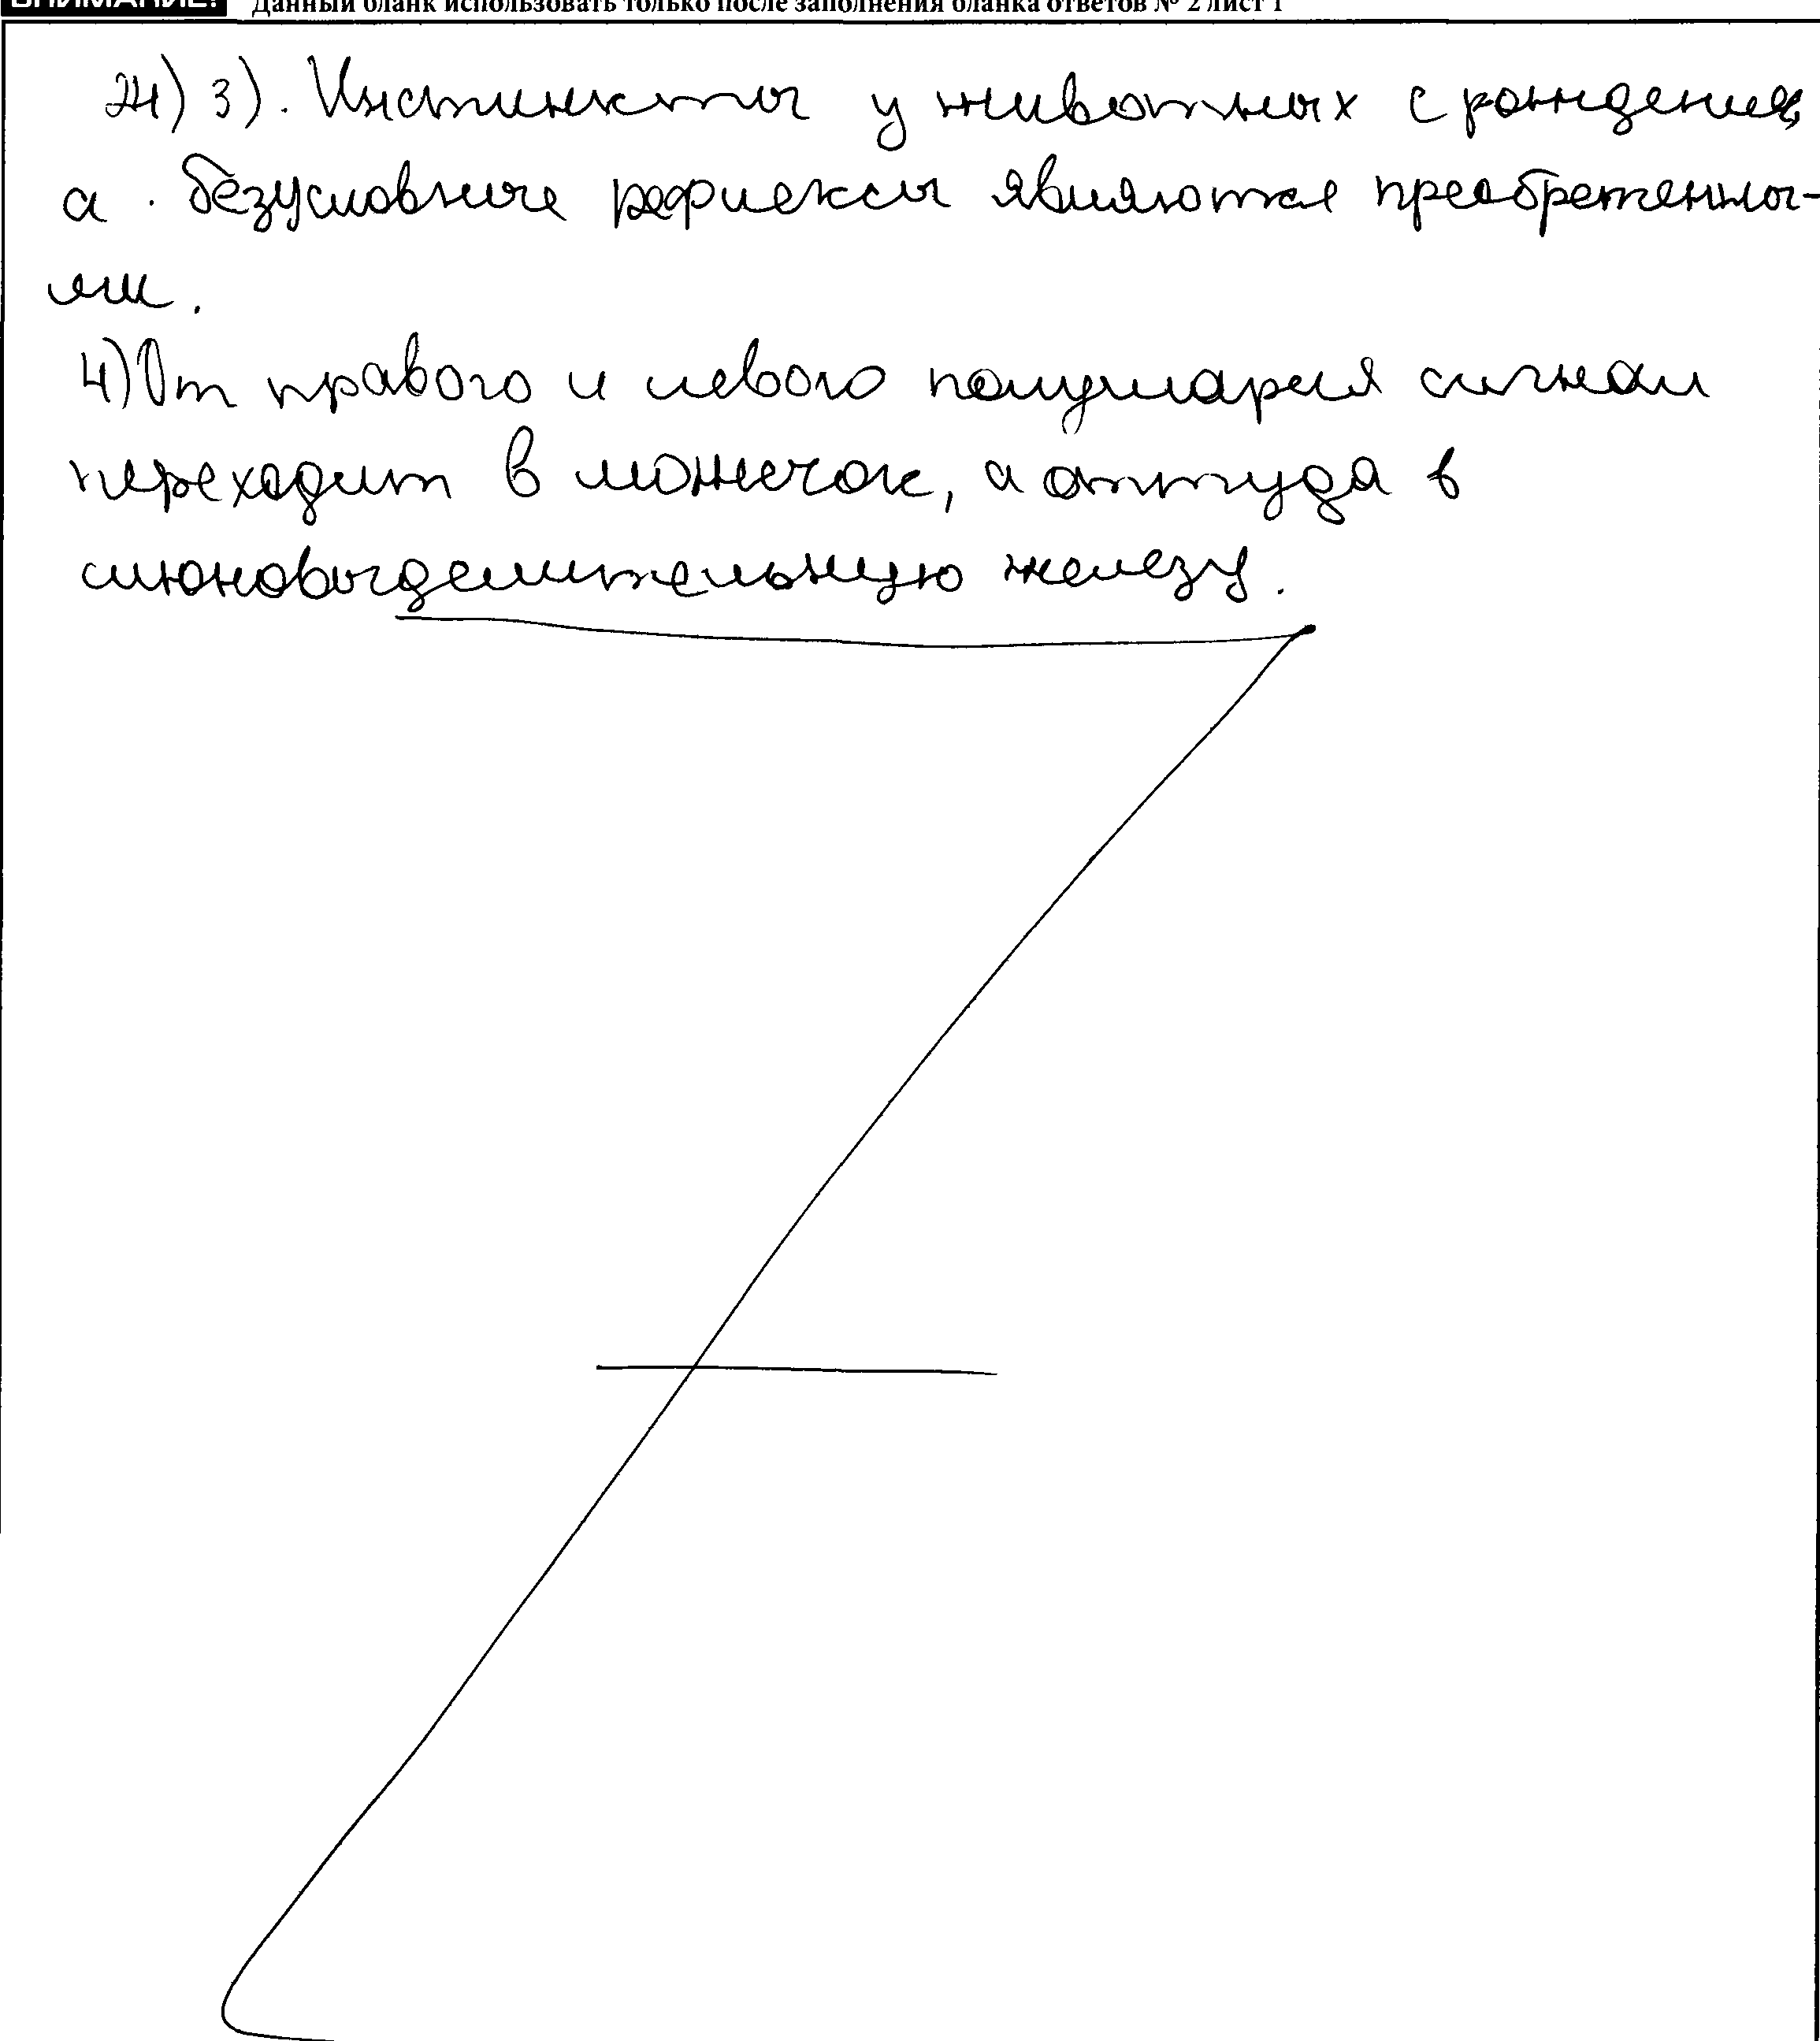 ВНИМАНИЕ! Данный бланк использовать только после заполнения бланка ответов № 2 лист 1
24) 3). Инстинкты у животных с рождения,
а безусловные рефлексы являются преобретенны-
ми.
4) От правого и левого полушария сигнал
переходит в можечок, а оттуда в
слюновыделительную железу.